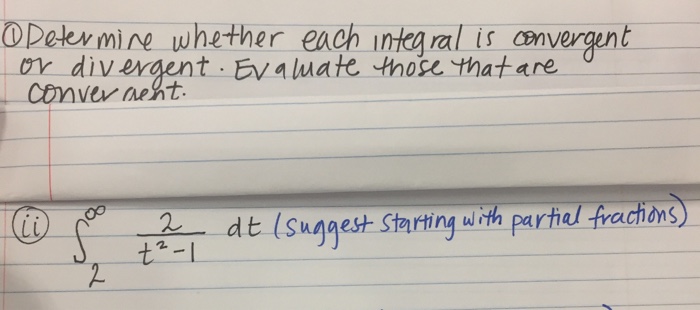 ① Determine whether each integral is convergent
or divergent. Evaluate those that are
convergent.
ⓘⓘ ∫₂^∞ 2/(t²-1) dt (suggest starting with partial fractions)